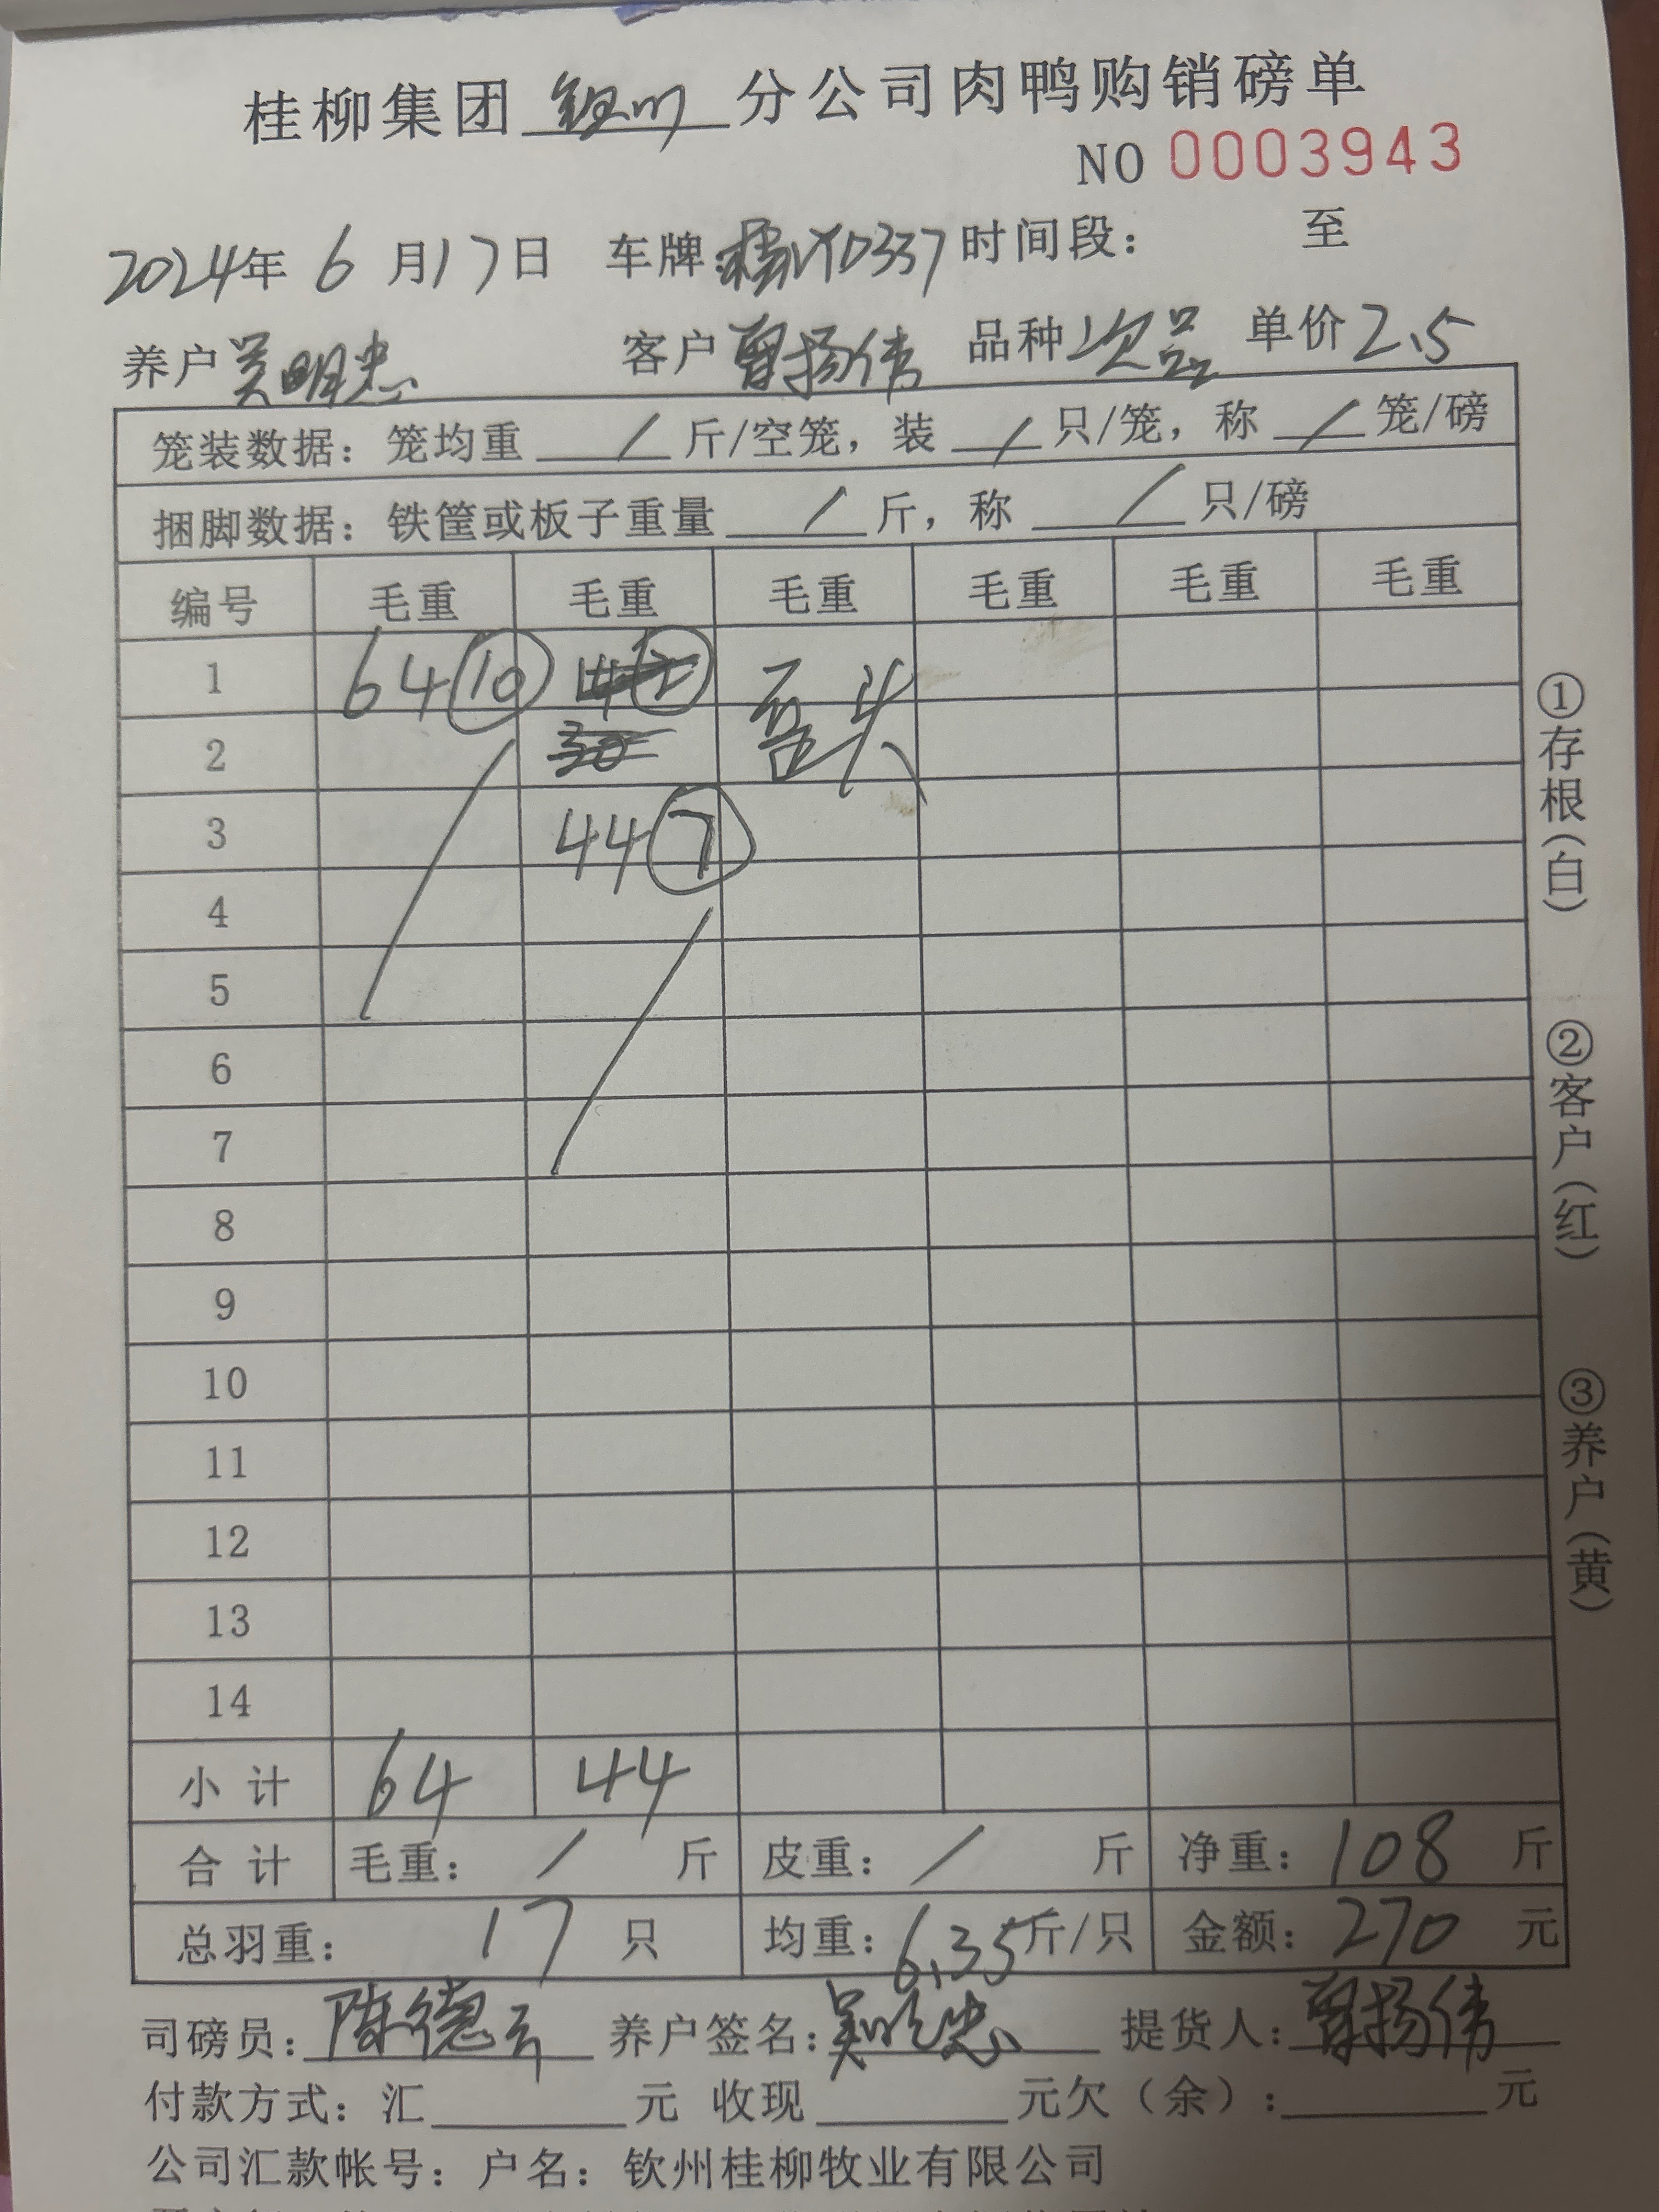 桂柳集团 钦州 分公司肉鸭购销磅单
NO 0003943
2024年 6 月17日 车牌: 时间段: 至
养户 吴明忠 客户 曾扬伟 品种 次品 单价 2.5
笼装数据: 笼均重 / 斤/空笼, 装 / 只/笼, 称 / 笼/磅
捆脚数据: 铁筐或板子重量 / 斤, 称 / 只/磅
编号 毛重 毛重 毛重 毛重 毛重 毛重
1 64 10
2
3 44 7
4
5
6
7
8
9
10
11
12
13
14
小 计 64 44
合 计 毛重: / 斤 皮重: / 斤 净重: 108 斤
总羽重: 17 只 均重: 6.35 斤/只 金额: 270 元
司磅员: 陈德 养户签名: 吴明忠 提货人: 曾扬伟
付款方式: 汇 元 收现 元欠(余): 元
公司汇款帐号: 户名: 钦州桂柳牧业有限公司
①存根(白) ②客户(红) ③养户(黄)